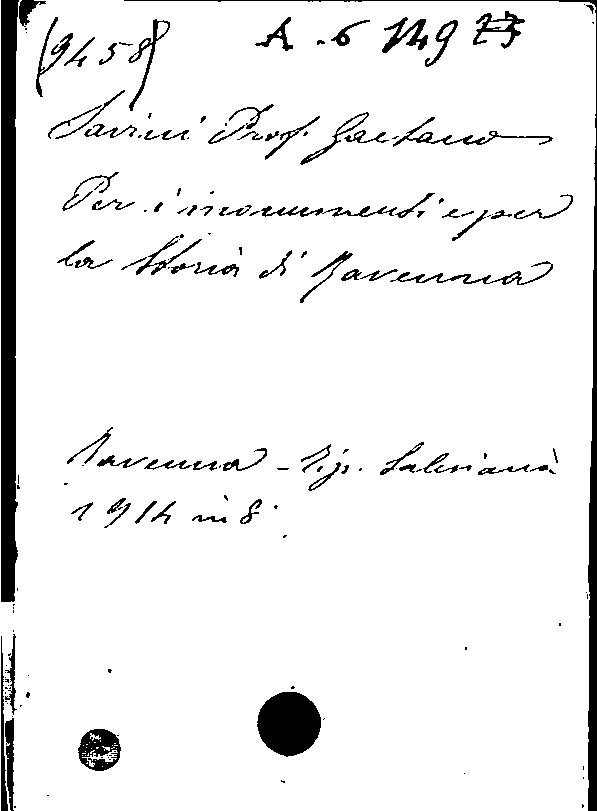 (9458) A . 6 149
Savini Prof. Gaetano
Per i monumenti e per
la Storia di Ravenna
Ravenna - Tip. Salesiana
1914 in 8°